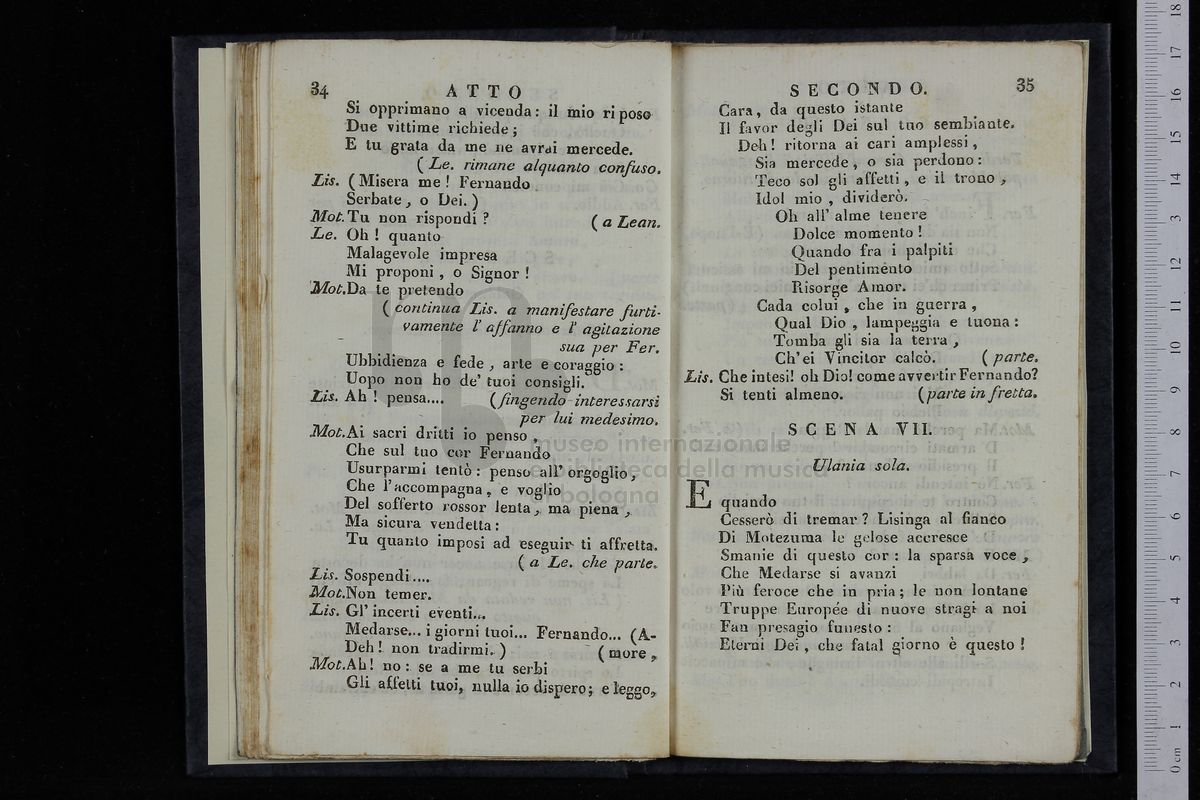 34 ATTO
Si opprimano a vicenda: il mio riposo
Due vittime richiede;
E tu grata da me ne avrai mercede.
( Le. rimane alquanto confuso.
Lis. ( Misera me! Fernando
Serbate, o Dei. )
Mot. Tu non rispondi? ( a Lean.
Le. Oh! quanto
Malagevole impresa
Mi proponi, o Signor!
Mot. Da te pretendo
( continua Lis. a manifestare furti-
vamente l' affanno e l' agitazione
sua per Fer.
Ubbidienza e fede, arte e coraggio:
Uopo non ho de' tuoi consigli.
Lis. Ah! pensa.... (fingendo interessarsi
per lui medesimo.
Mot. Ai sacri dritti io penso,
Che sul tuo cor Fernando
Usurparmi tentò: penso all' orgoglio,
Che l'accompagna, e voglio
Del sofferto rossor lenta, ma piena,
Ma sicura vendetta:
Tu quanto imposi ad eseguir ti affretta.
( a Le. che parte.
Lis. Sospendi....
Mot. Non temer.
Lis. Gl' incerti eventi...
Medarse... i giorni tuoi... Fernando... (A-
Deh! non tradirmi. ) ( more,
Mot. Ah! no: se a me tu serbi
Gli affetti tuoi, nulla io dispero; e leggo,
SECONDO. 35
Cara, da questo istante
Il favor degli Dei sul tuo sembiante.
Deh! ritorna ai cari amplessi,
Sia mercede, o sia perdono:
Teco sol gli affetti, e il trono,
Idol mio, dividerò.
Oh all' alme tenere
Dolce momento!
Quando fra i palpiti
Del pentimento
Risorge Amor.
Cada colui, che in guerra,
Qual Dio, lampeggia e tuona:
Tomba gli sia la terra,
Ch'ei Vincitor calcò. ( parte.
Lis. Che intesi! oh Dio! come avvertir Fernando?
Si tenti almeno. (parte in fretta.
SCENA VII.
Ulania sola.
E quando
Cesserò di tremar? Lisinga al fianco
Di Motezuma le gelose accresce
Smanie di questo cor: la sparsa voce,
Che Medarse si avanzi
Più feroce che in pria; le non lontane
Truppe Europée di nuove stragi a noi
Fan presagio funesto:
Eterni Dei, che fatal giorno è questo!
museo internazionale
e biblioteca della musica
bologna
0 cm 1 2 3 4 5 6 7 8 9 10 11 12 13 14 15 16 17 18